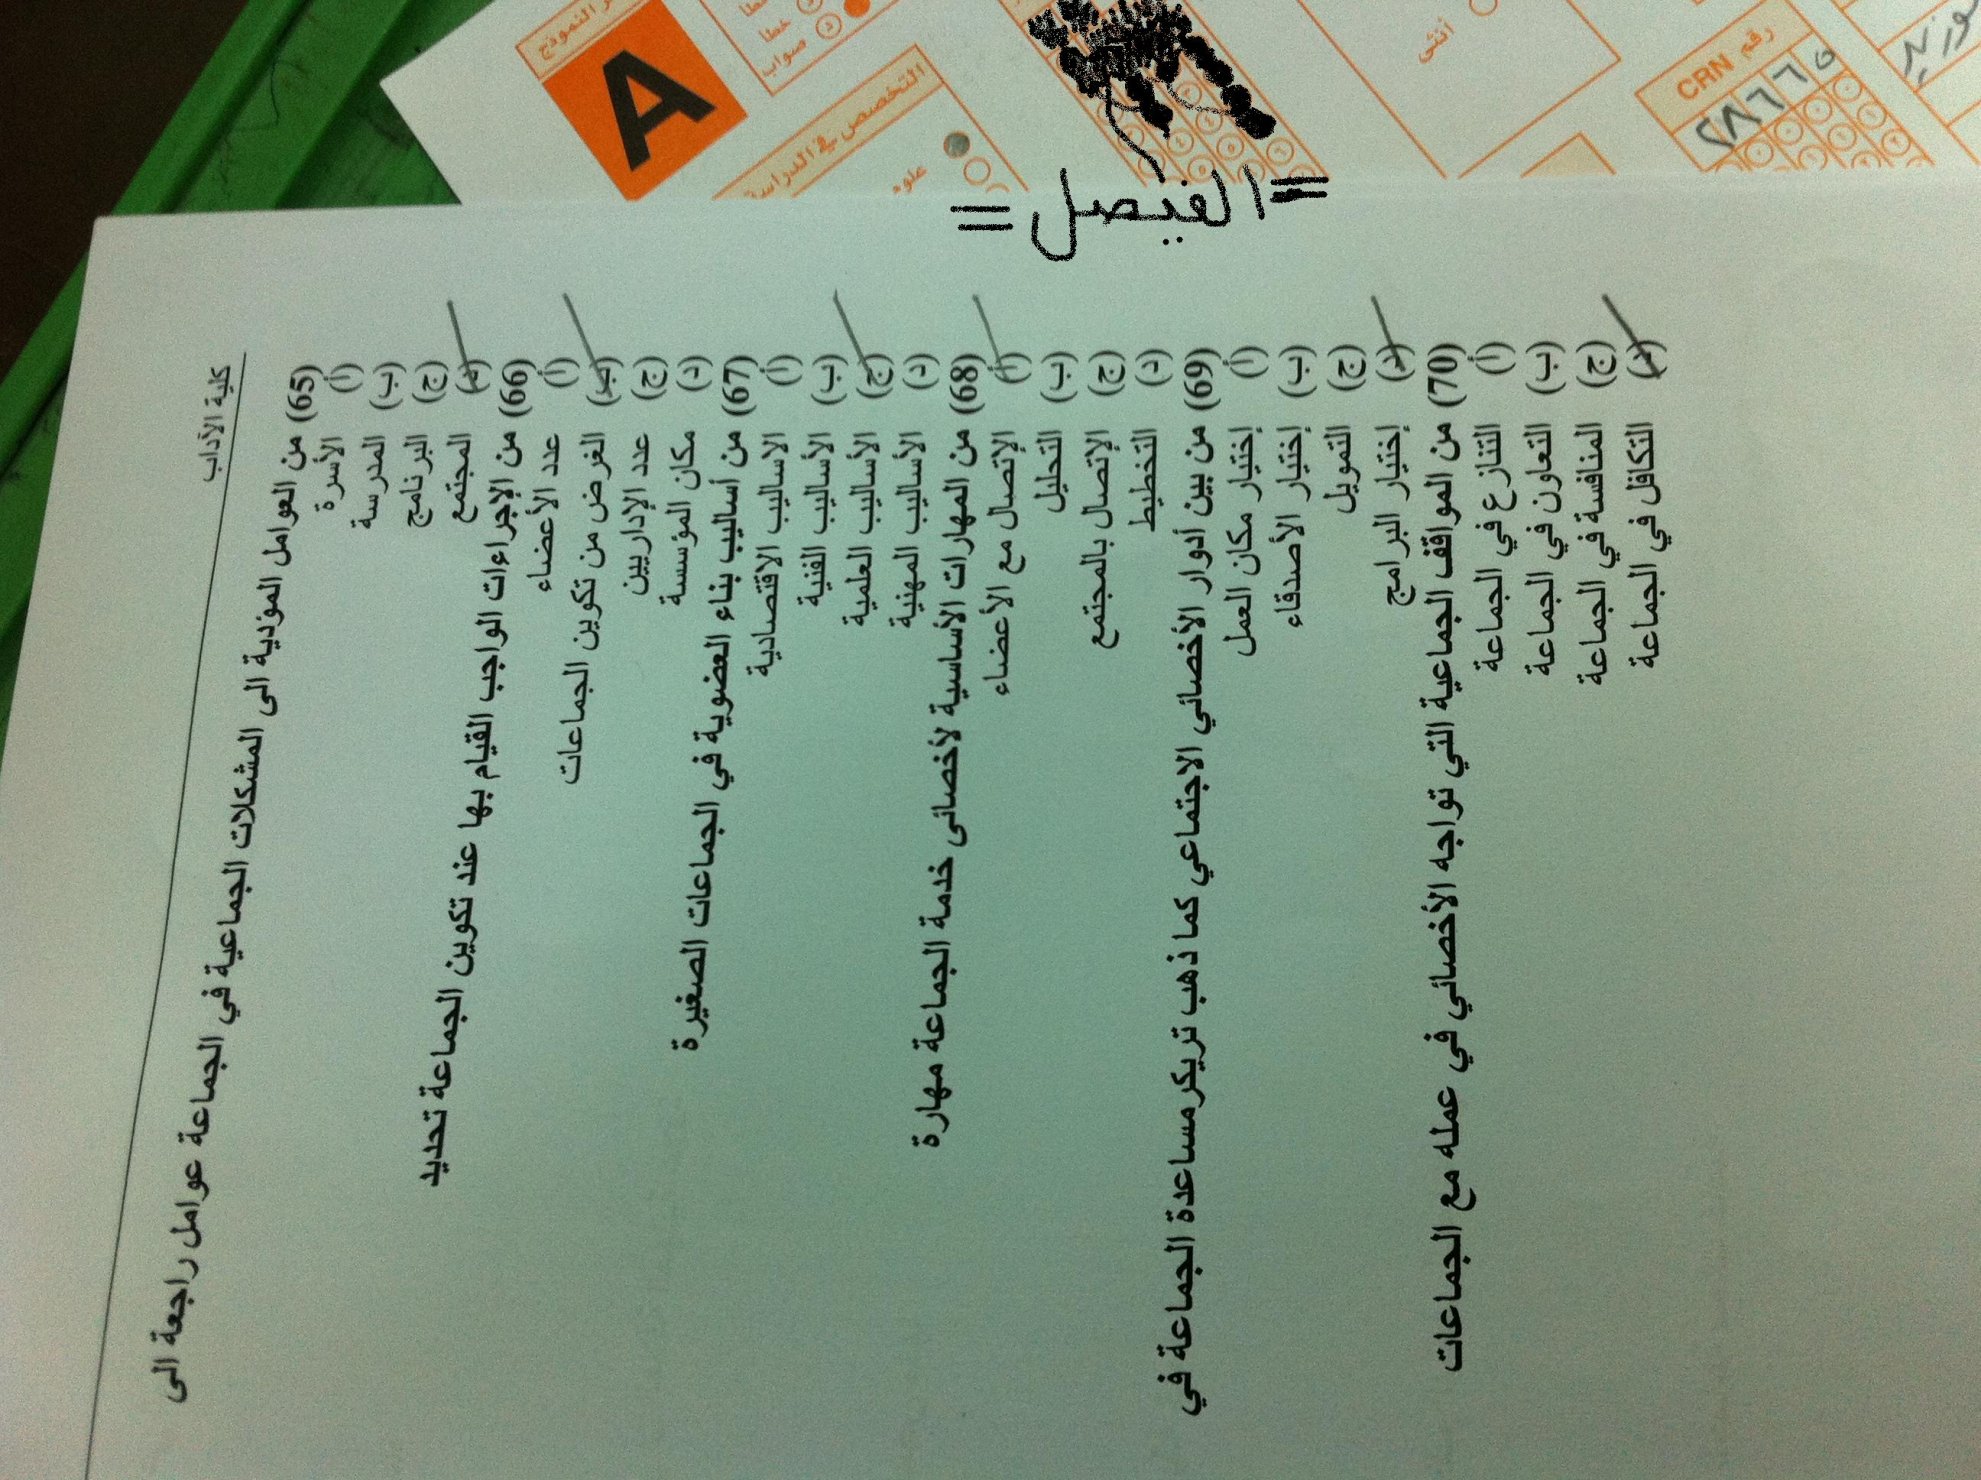 رقم النموذج
A
خطأ
صواب
التخصص في الدراسة
علوم
أنثى
رقم CRN
=الفيصل=
كلية الآداب
(65) من العوامل المؤدية الى المشكلات الجماعية في الجماعة عوامل راجعة الى
(أ) الأسرة
(ب) المدرسة
(ج) البرنامج
(د) المجتمع
(66) من الإجراءات الواجب القيام بها عند تكوين الجماعة تحديد
(أ) عدد الأعضاء
(ب) الغرض من تكوين الجماعات
(ج) عدد الإداريين
(د) مكان المؤسسة
(67) من أساليب بناء العضوية في الجماعات الصغيرة
(أ) الاساليب الاقتصادية
(ب) الأساليب الفنية
(ج) الأساليب العلمية
(د) الأساليب المهنية
(68) من المهارات الأساسية لأخصائى خدمة الجماعة مهارة
(أ) الإتصال مع الأعضاء
(ب) التحليل
(ج) الإتصال بالمجتمع
(د) التخطيط
(69) من بين أدوار الأخصائي الاجتماعي كما ذهب تريكرمساعدة الجماعة في
(أ) إختيار مكان العمل
(ب) إختيار الأصدقاء
(ج) التمويل
(د) إختيار البرامج
(70) من المواقف الجماعية التي تواجه الأخصائي في عمله مع الجماعات
(أ) التنازع في الجماعة
(ب) التعاون في الجماعة
(ج) المنافسة في الجماعة
(د) التكافل في الجماعة